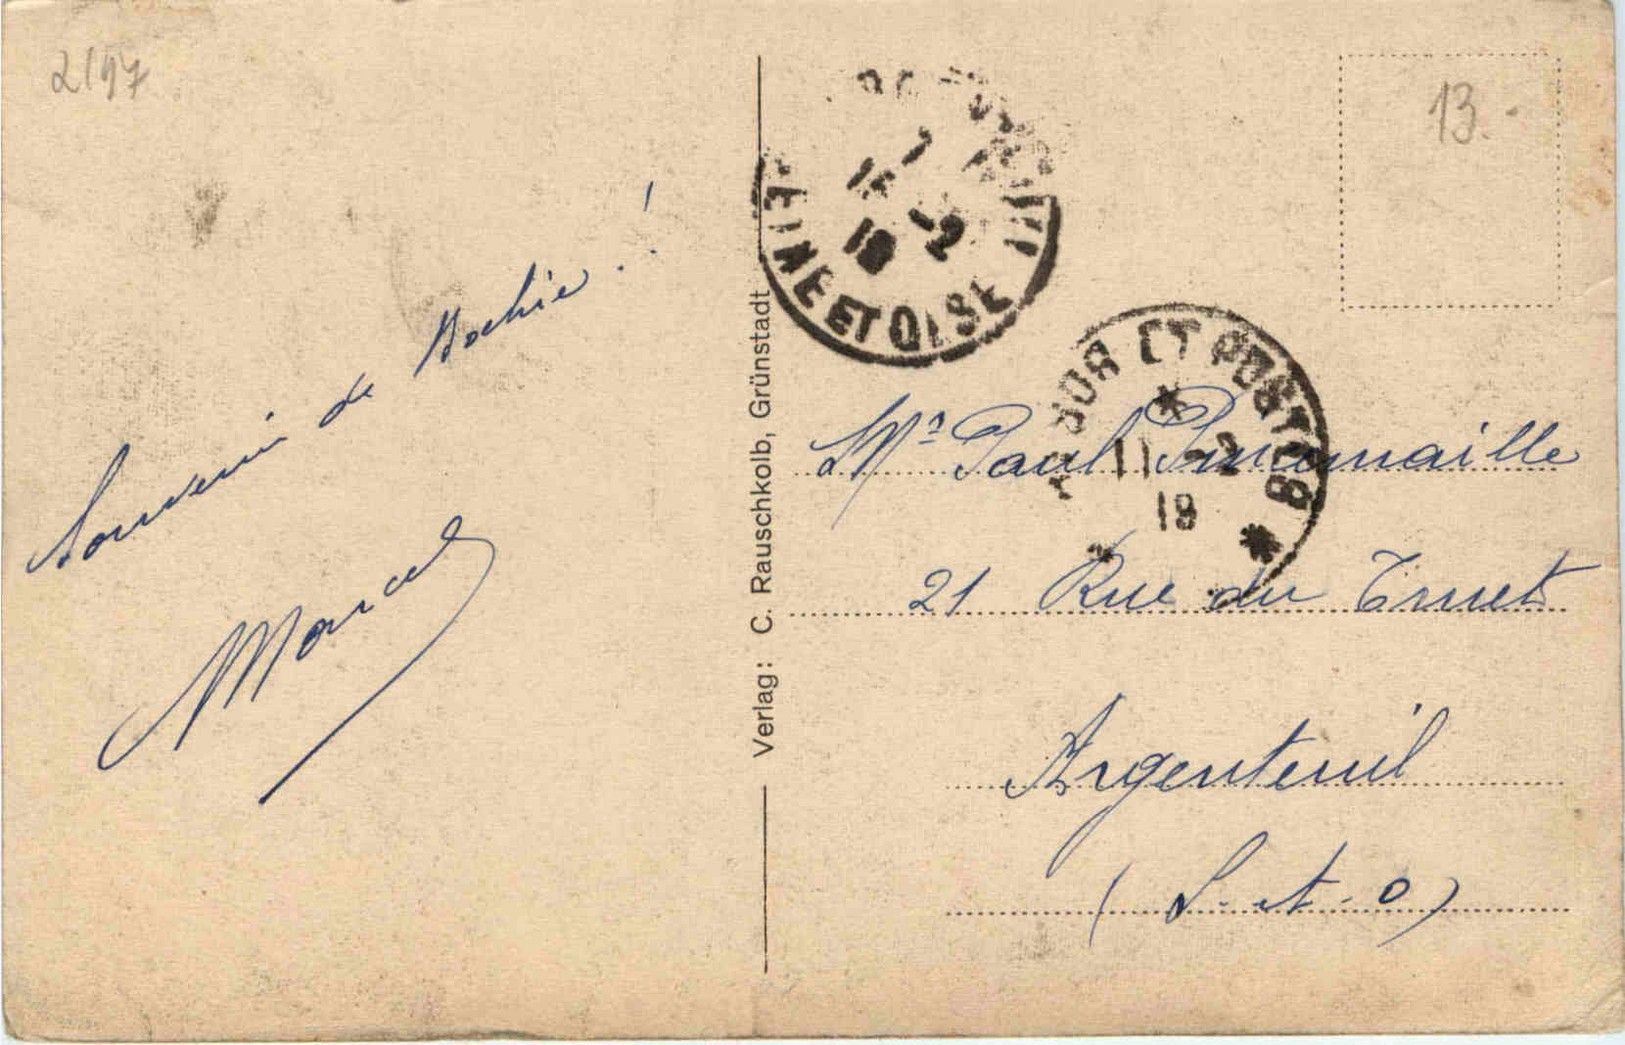 2197
13.-
Souvenir de Bochie..!
Marcel
Verlag: C. Rauschkolb, Grünstadt
SEINE ET OISE
7
15 -2
19
TRESOR ET POSTES
*
11 -2
19
*
Mr Paul
21 Rue du
Argenteuil
(S.-et-O)